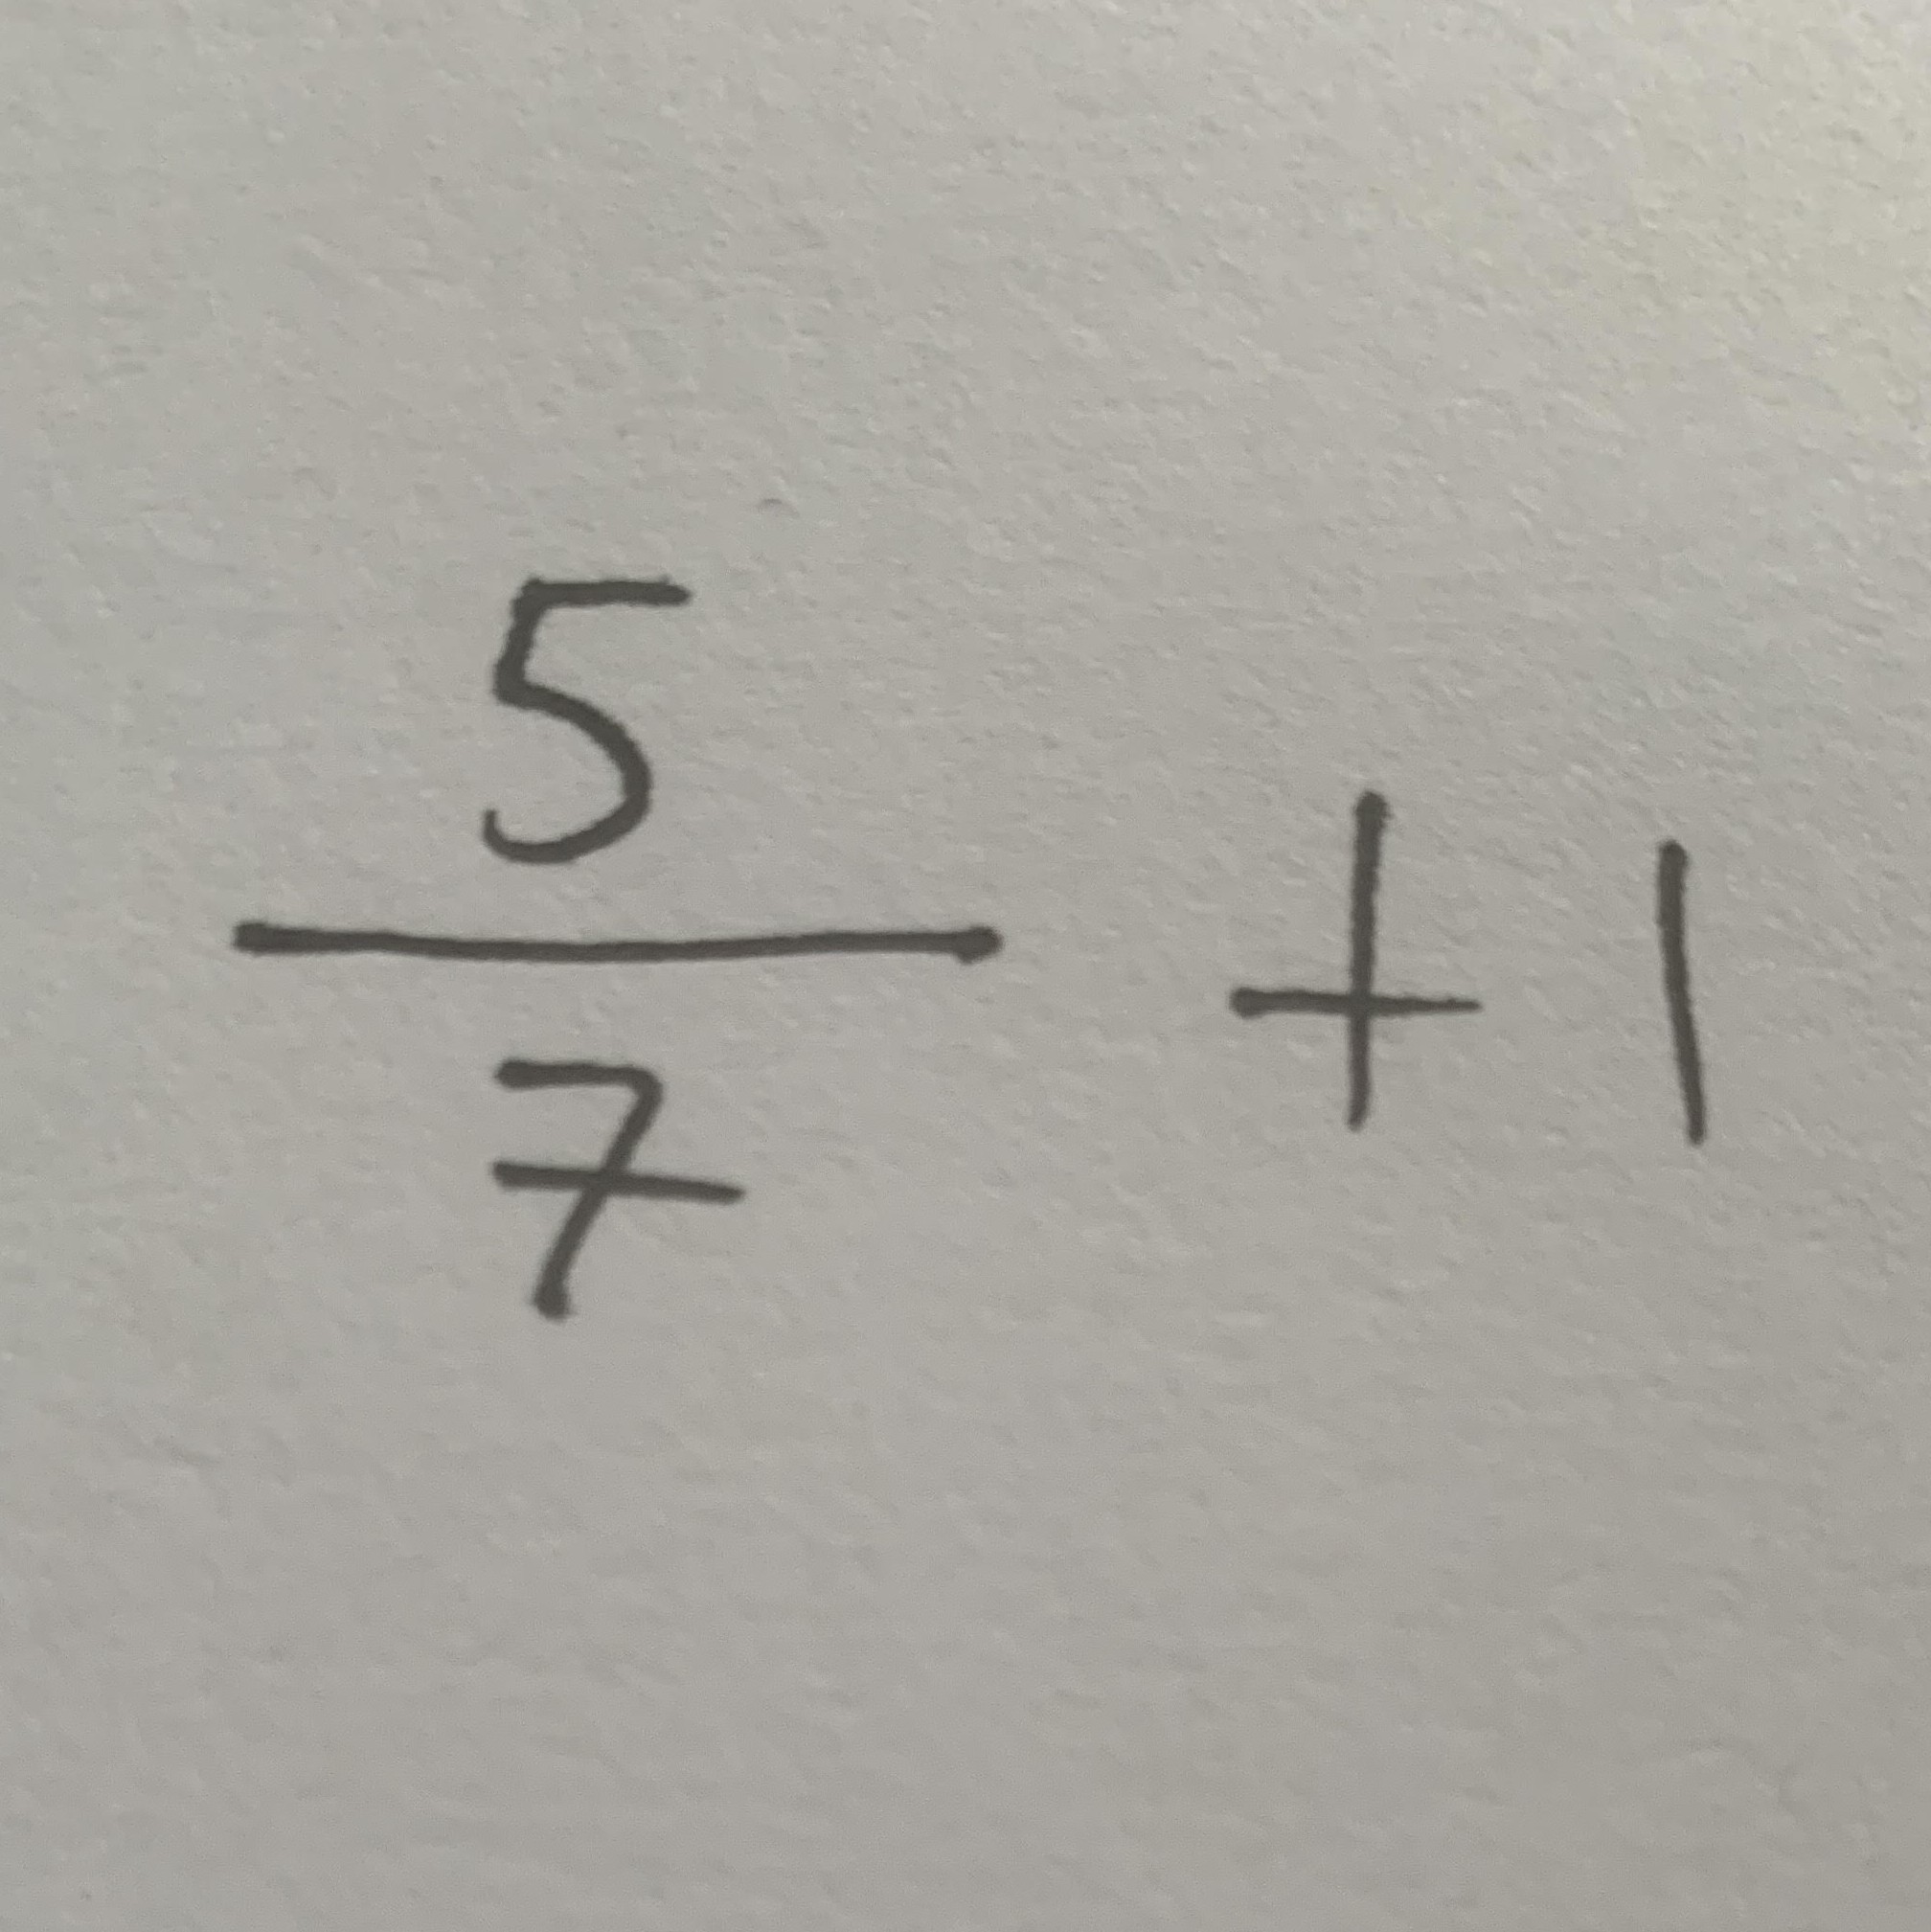 5/7 + 1